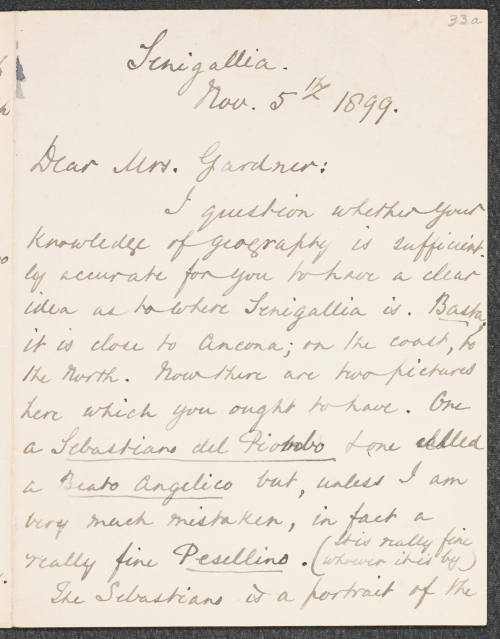 33a
Senigallia.
Nov. 5th 1899.
Dear Mrs. Gardner:
I question whether your
knowledge of geography is sufficient-
ly accurate for you to have a clear
idea as to where Senigallia is. Basta,
it is close to Ancona; on the coast, to
the North. Now there are two pictures
here which you ought to have. One
a Sebastiano del Piombo & one called
a Beato Angelico but, unless I am
very much mistaken, in fact a
really fine Pesellino. (it is really fine
whoever it is by)
The Sebastiano is a portrait of the